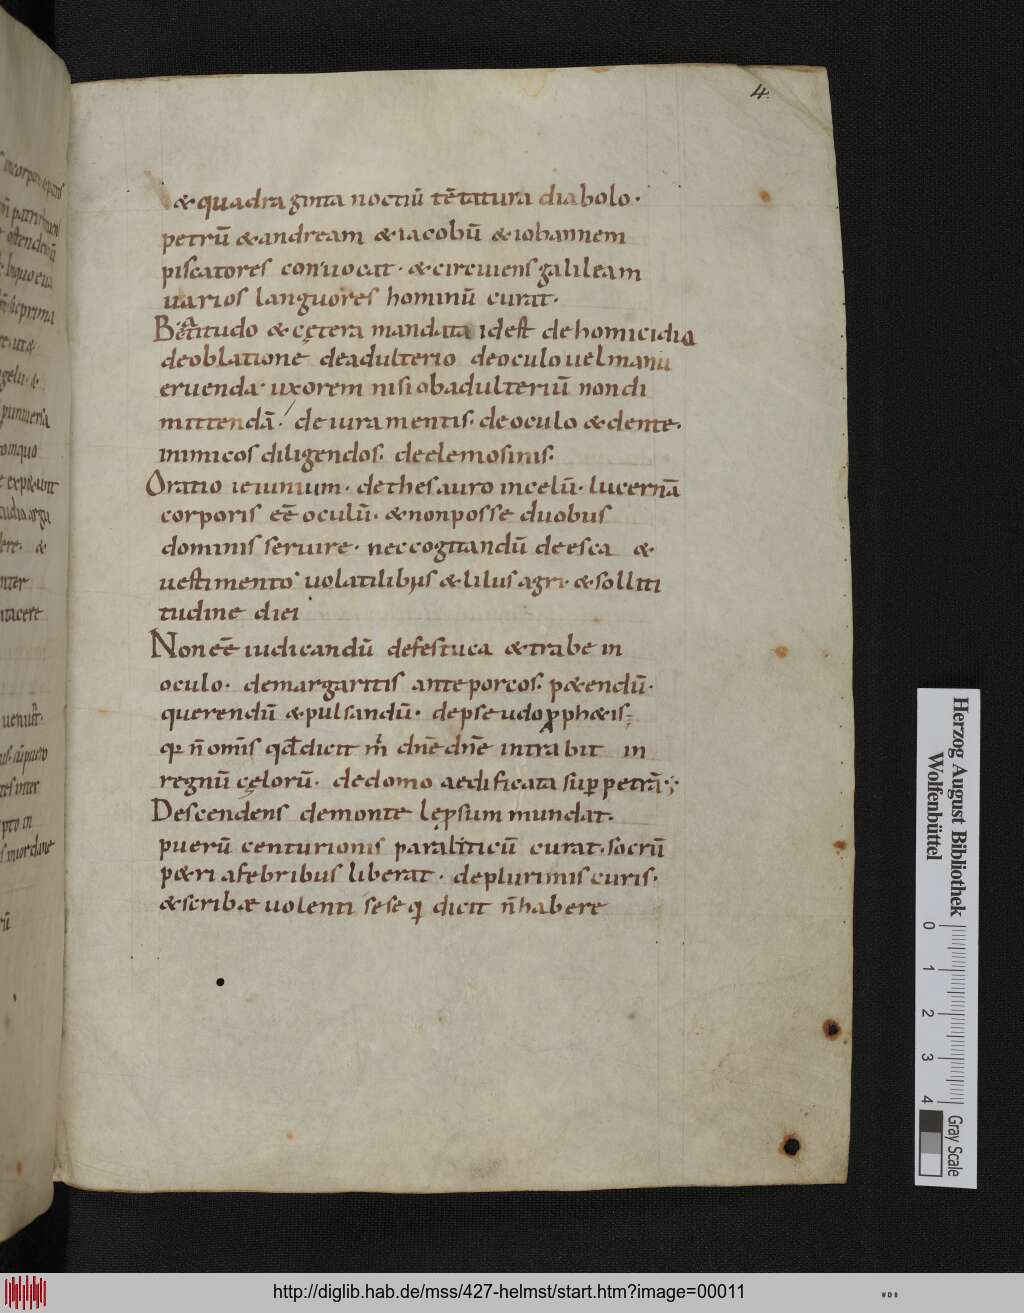 4.
& quadraginta noctiū tēntatura diabolo.
petrū & andream & iacobū & iohannem
piscatores conuocat. & circuiens galileam
uarios languores hominū curat.
Beatitudo & cętera mandata idest de homicidio
de oblatione, de adulterio de oculo uel manu
eruenda. uxorem nisi ob adulteriū non di
mittendā. de iuramentis. de oculo & dente.
inimicos diligendos. de elemosinis.
Oratio ieiunium. de thesauro in celū. lucernā
corporis eē oculū. & non posse duobus
dominis seruire. nec cogitandū de esca &
uestimento. uolatilibus & lilus agri. & solliti
tudine diei
Non eē iudicandū de festuca & trabe in
oculo. de margaritis ante porcos. p&endū.
querendū & pulsandū. de pseudo ꝓph&is;
qꝛ n̄ omīs qđ dicit m̄ dn̄e dn̄e intrabit in
regnū cęlorū. de domo aedificata suꝑ petrā;
Descendens de monte lępsum mundat.
puerū centurionis paraliticū curat. socrū
p&ri a febribus liberat. de plurimis curis.
& scribæ uolenti se seq̄ dicit n̄ habere
Herzog August Bibliothek
Wolfenbüttel
0 1 2 3 4
Gray Scale
http://diglib.hab.de/mss/427-helmst/start.htm?image=00011